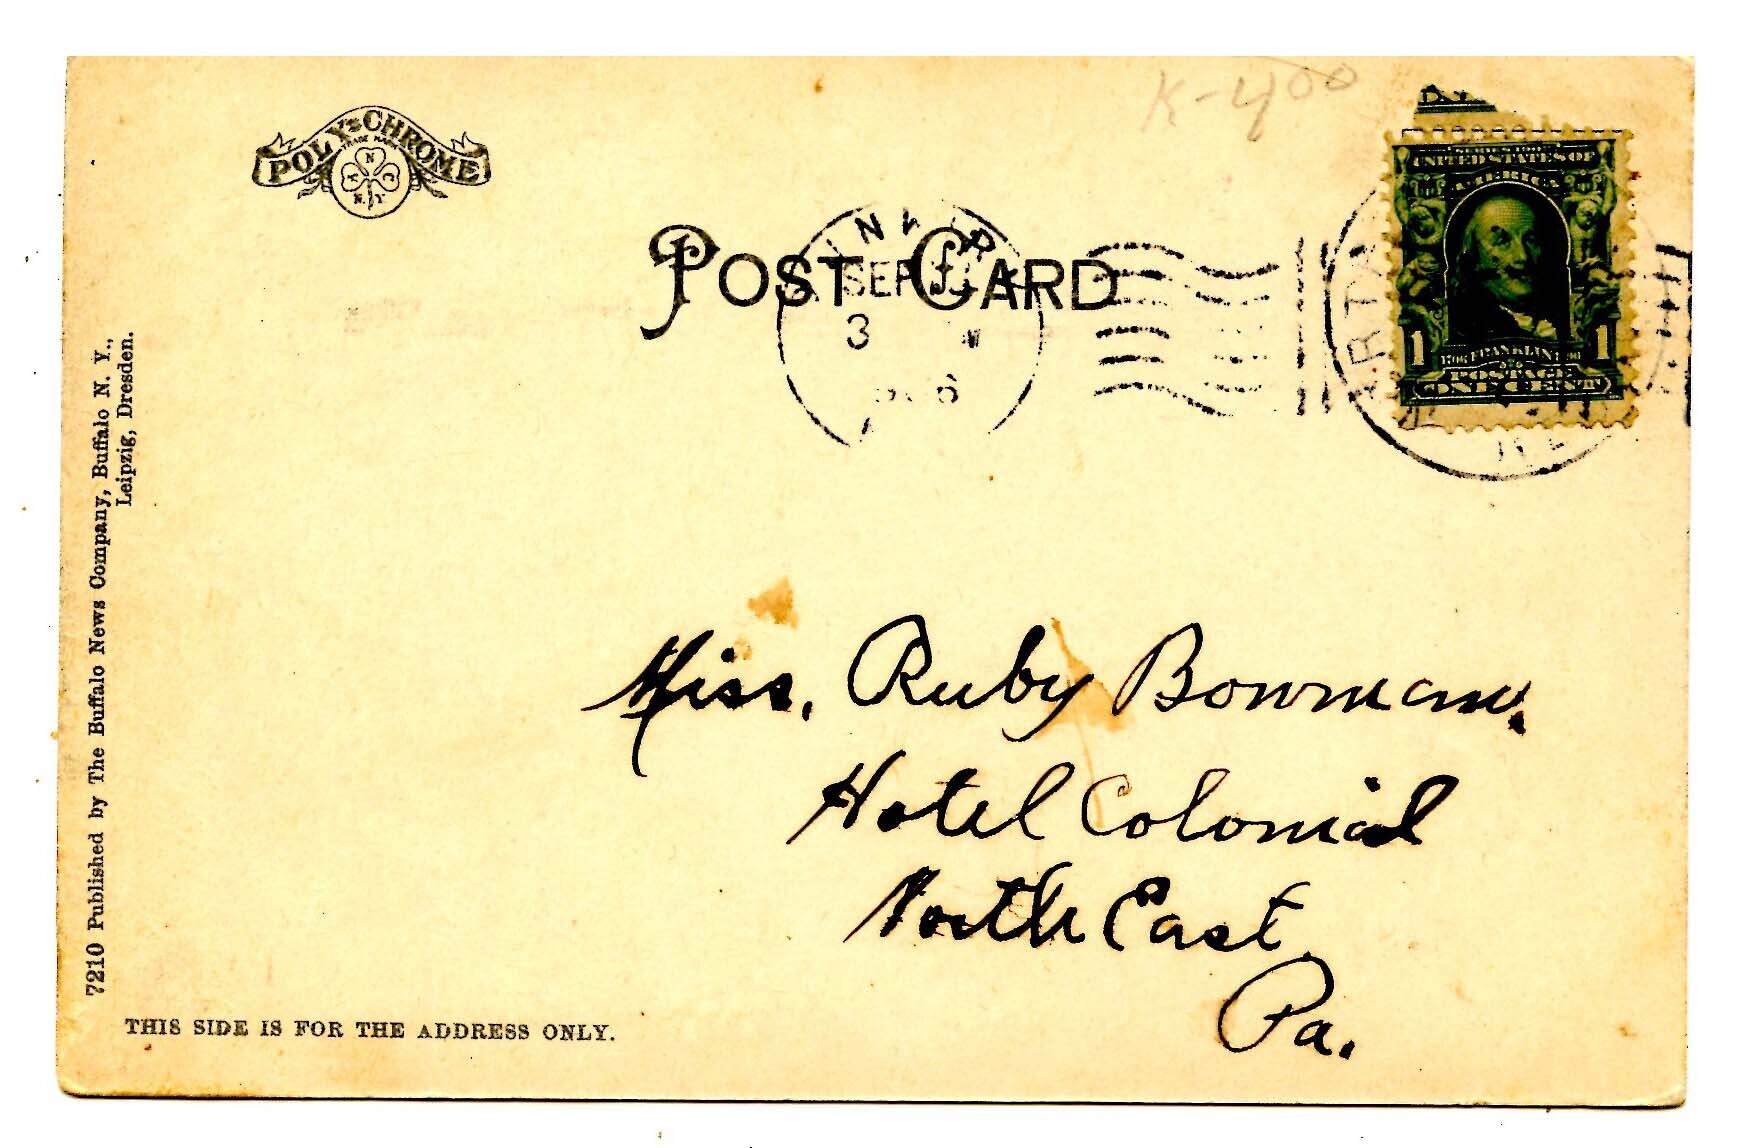 K-400
POLY-CHROME
TRADE MARK
N
N.Y.
POST CARD
SEP
3
6
UNITED STATES OF
AMERICA
1 FRANKLIN 1
POSTAGE
ONE CENT
Miss, Ruby Bowman.
Hotel Colonial
North East
Pa.
7210 Published by The Buffalo News Company, Buffalo N. Y.,
Leipzig, Dresden.
THIS SIDE IS FOR THE ADDRESS ONLY.